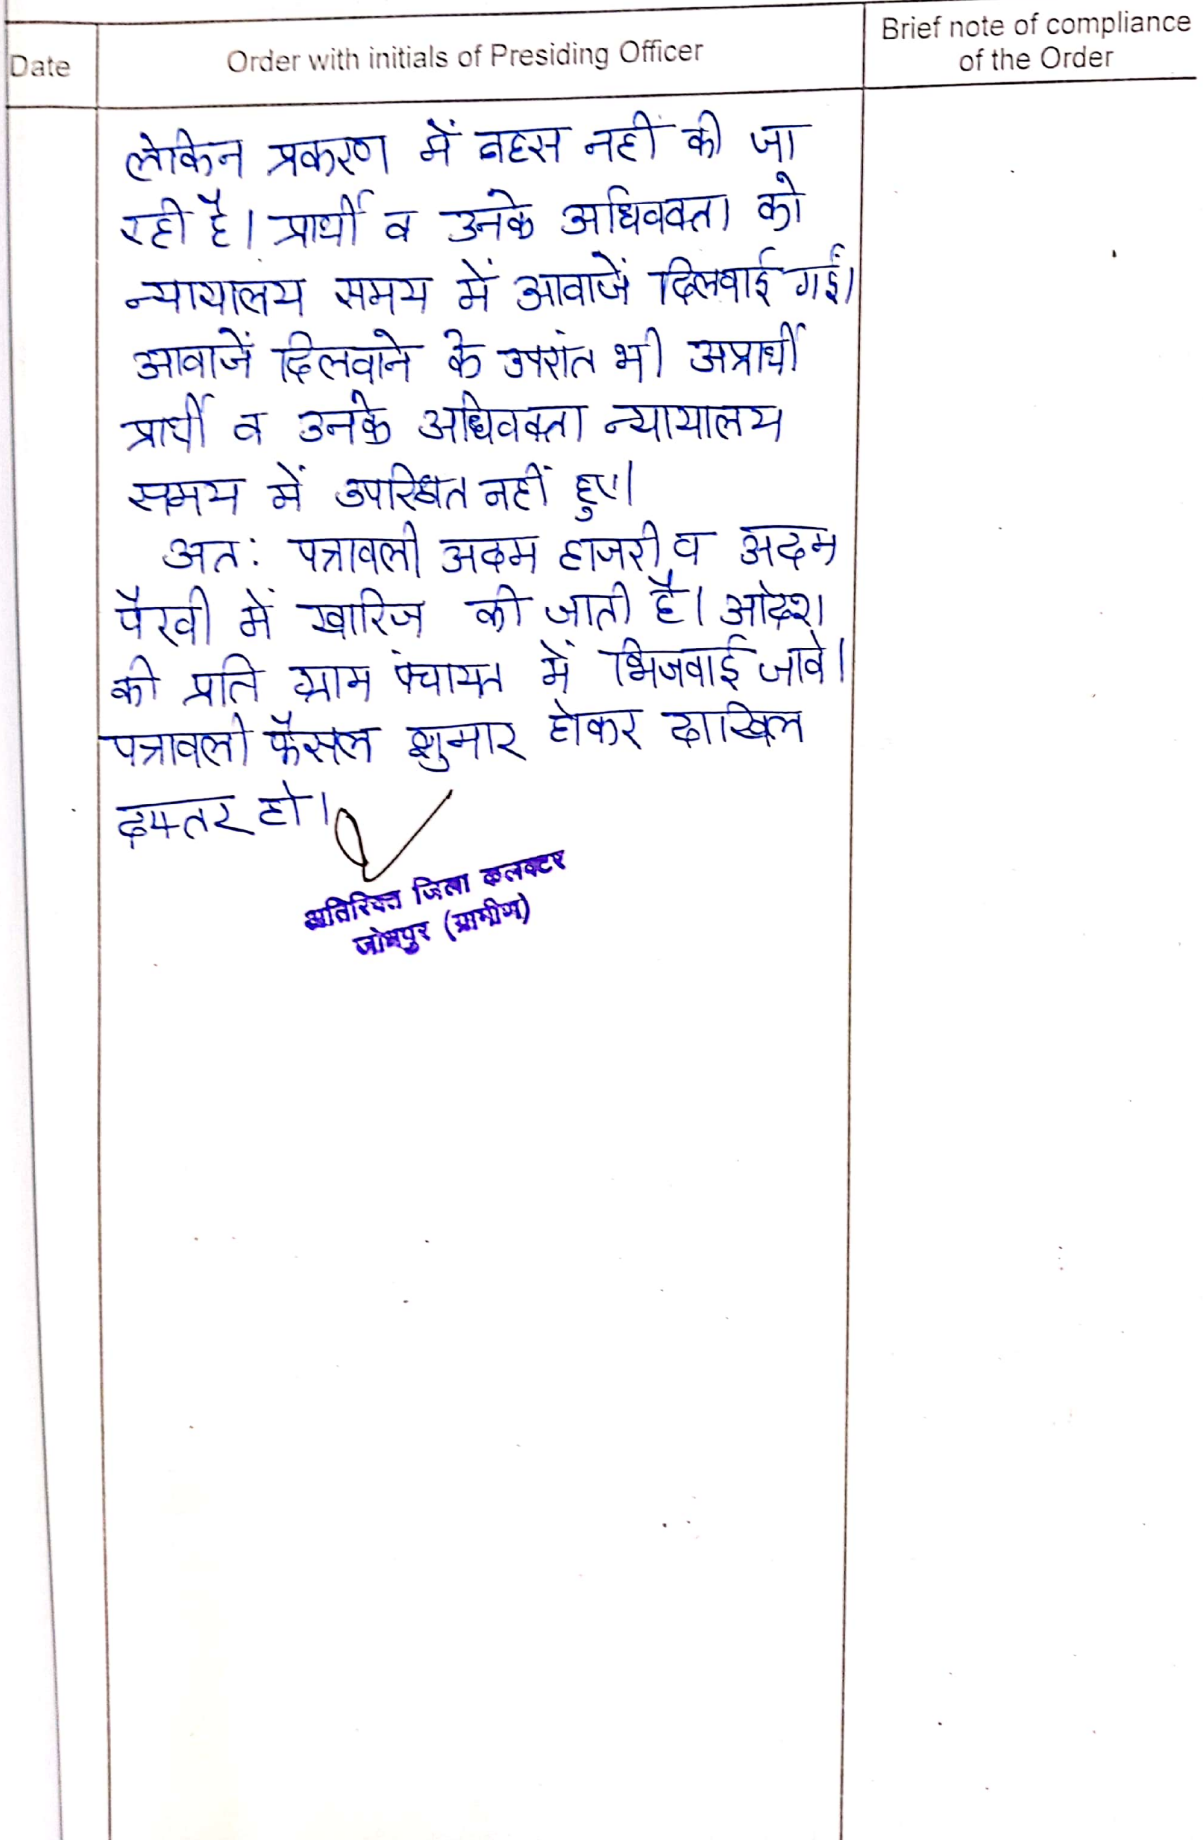 Date
Order with initials of Presiding Officer
Brief note of compliance
of the Order
लेकिन प्रकरण में बहस नहीं की जा
रही है। प्रार्थी व उनके अधिवक्ता को
न्यायालय समय में आवाजें दिलवाई गई।
आवाजें दिलवाने के उपरांत भी अप्रार्थी
प्रार्थी व उनके अधिवक्ता न्यायालय
समय में उपस्थित नहीं हुए।
अतः पत्रावली अदम हाजरी व अदम
पैरवी में खारिज की जाती है। आदेश
की प्रति ग्राम पंचायत में भिजवाई जावे।
पत्रावली फैसल शुमार होकर दाखिल
दफ्तर हो।
अतिरिक्त जिला कलक्टर
जोधपुर (ग्रामीण)